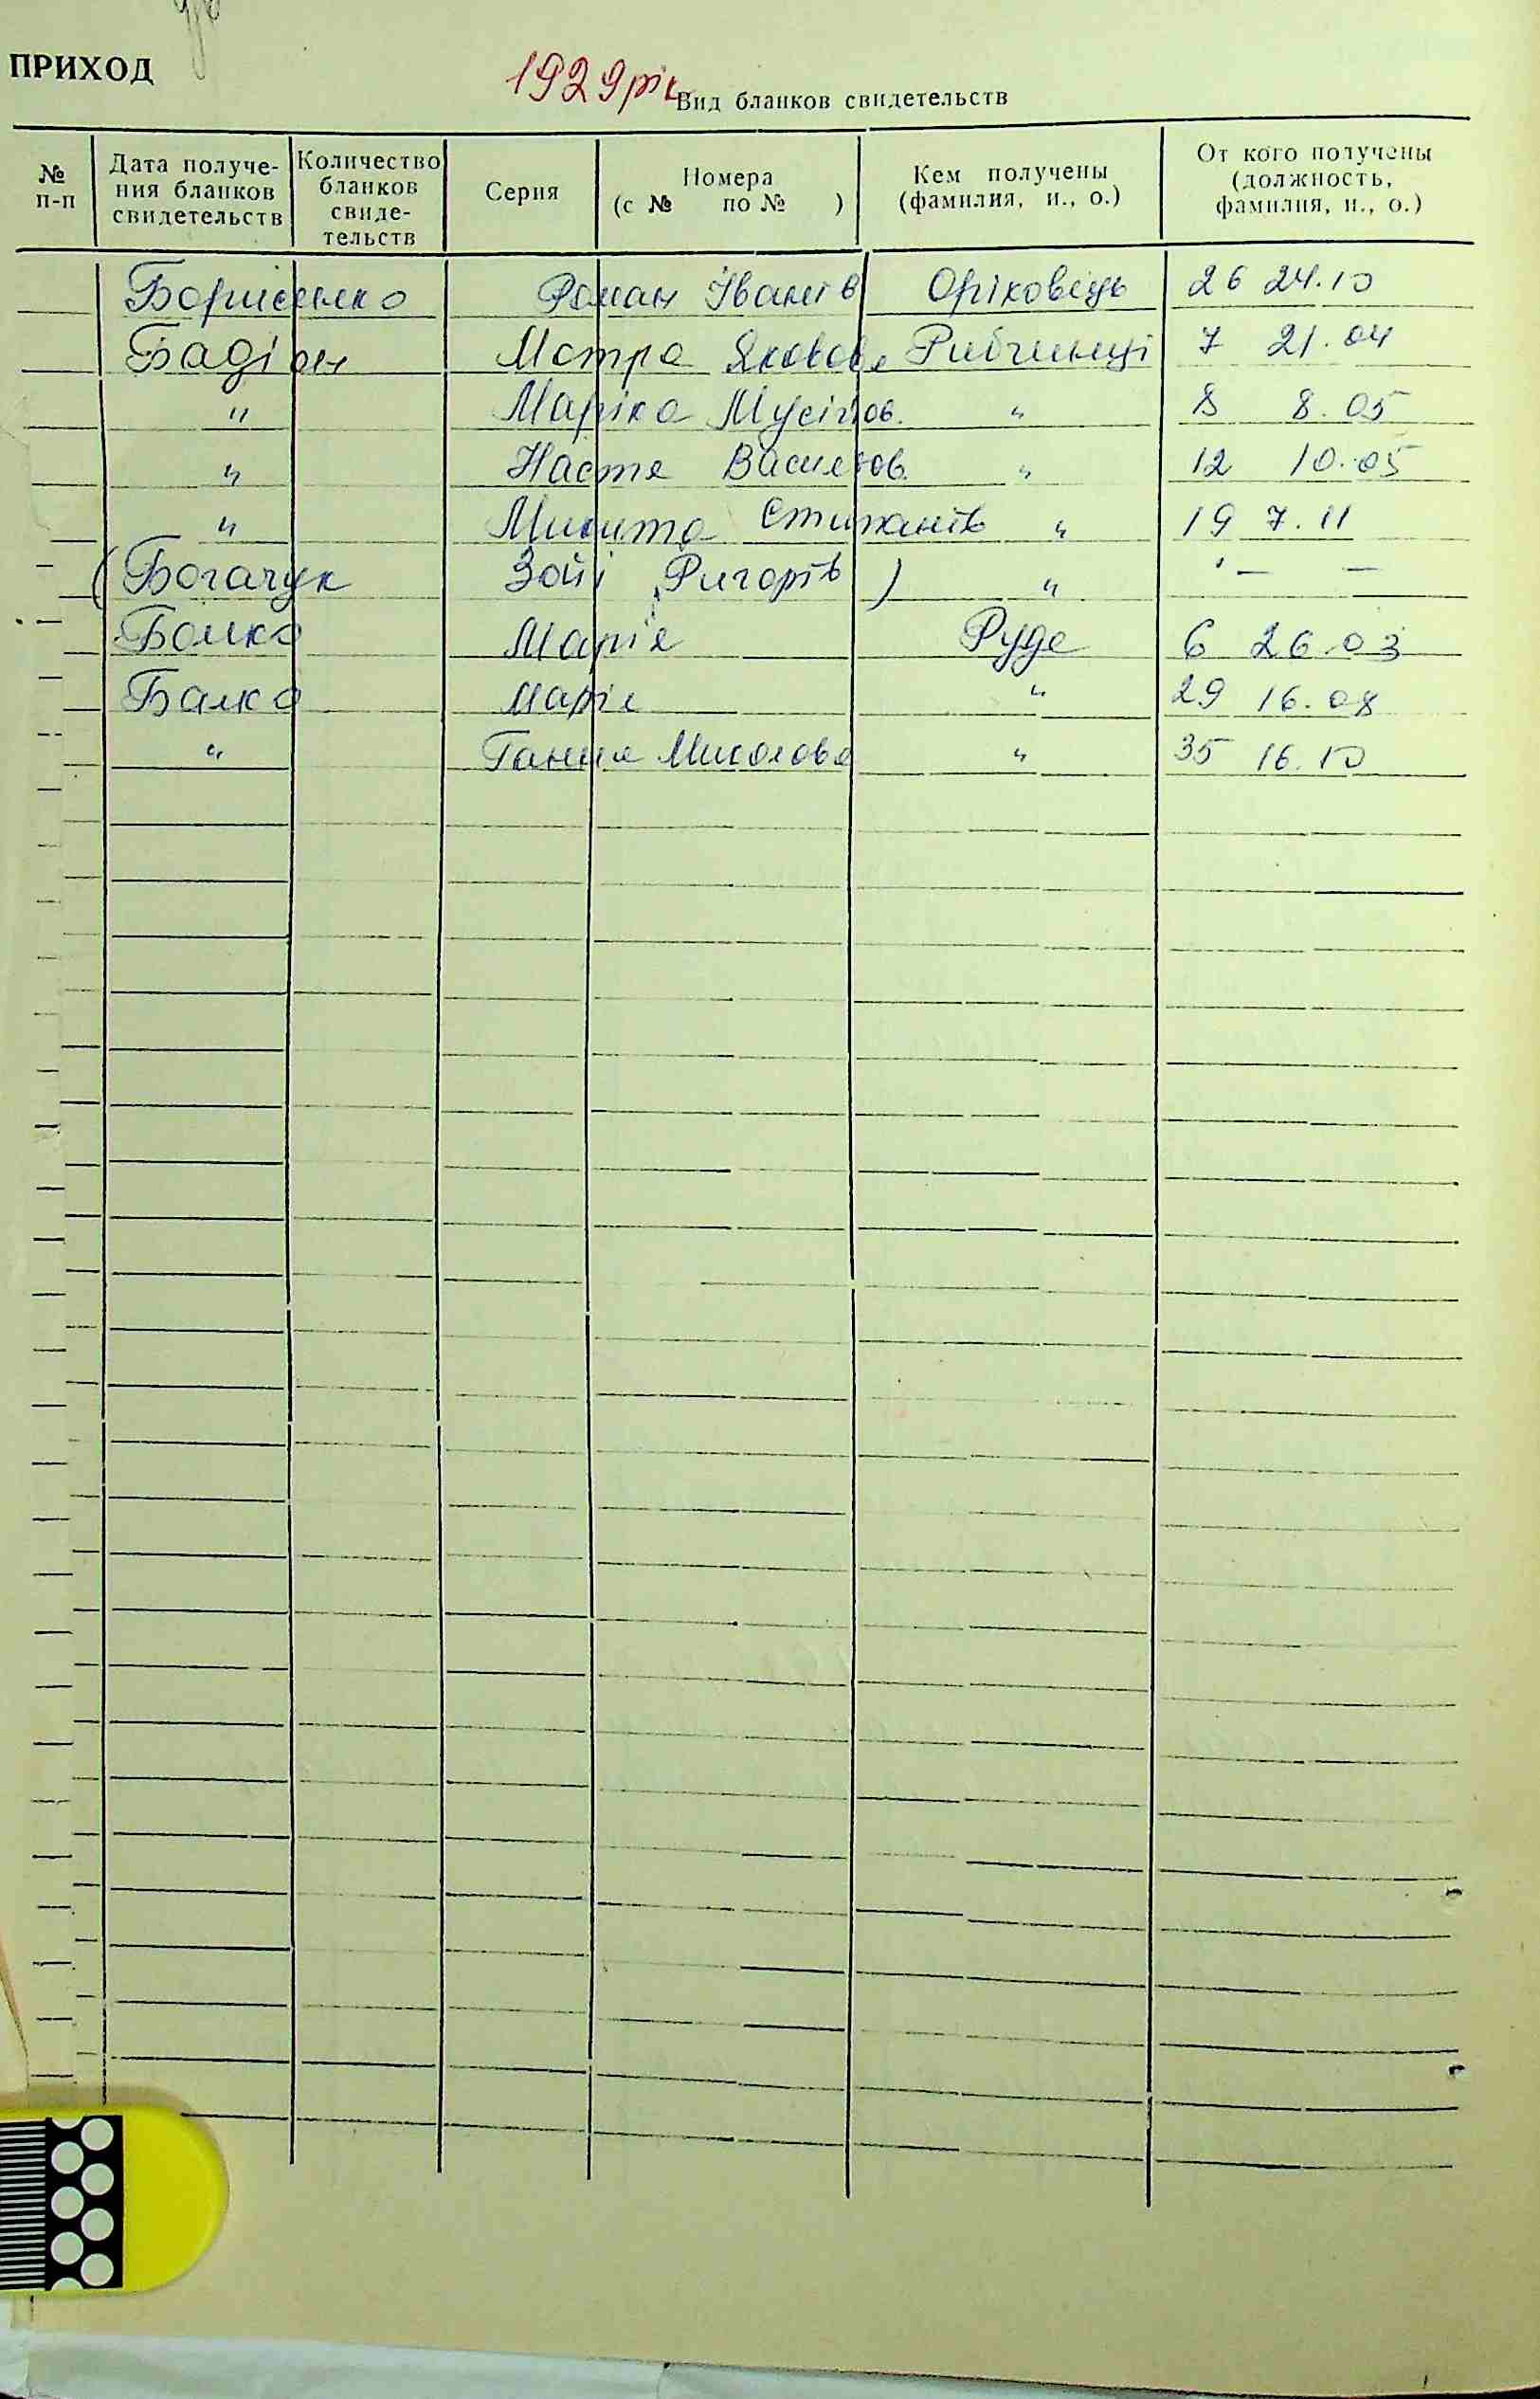 ПРИХОД
1929 рік
Вид бланков свидетельств
№ п-п
Дата получе-
ния бланков
свидетельств
Количество
бланков
свиде-
тельств
Серия
Номера
(с № по № )
Кем получены
(фамилия, и., о.)
От кого получены
(должность,
фамилия, и., о.)
Борисенко Роман Іванів Оріховець 26 24.10
Бадіон Мотра Яковов. Рибчинці 7 21.04
" Маріка Мусійов. " 8 8.05
" Настя Васильов. " 12 10.05
" Микита Степанів " 19 7.11
(Богачук Зойі Ригорів ) " — —
Бойко Марія Руда 6 26.03
Балко Марія " 29 16.08
" Ганна Миколова " 35 16.10